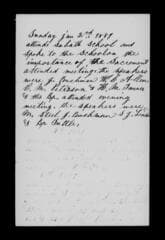 Sunday Jan 2nd 1889
attended Sabath School and
spoke to the School on the
importance of the Sacrament
attended meeting. the speakers
were J. Bushman
O. M. Peterson & H. M. Tanner
& the Bp. attended evening
meeting. the speakers were
M. Steel J. Bushman S. J.
& Lo Tuttle.